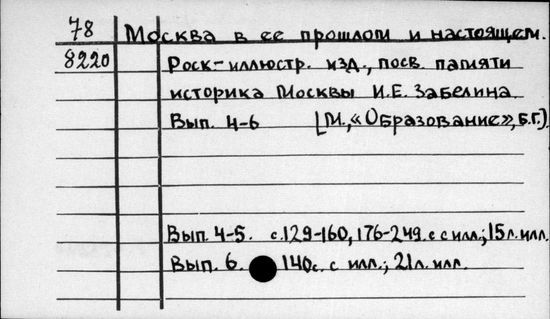 78 Москва в ее прошлом и настоящем.
8220 Роск-иллюстр. изд., посв. памяти
историка Москвы И.Е. Забелина.
Вып. 4-6 [М., «Образование», Б.Г.)
Вып. 4-5. с.129-160, 176-249. с с илл.; 15 л. илл.
Вып. 6. 140с. с илл.; 21 л. илл.